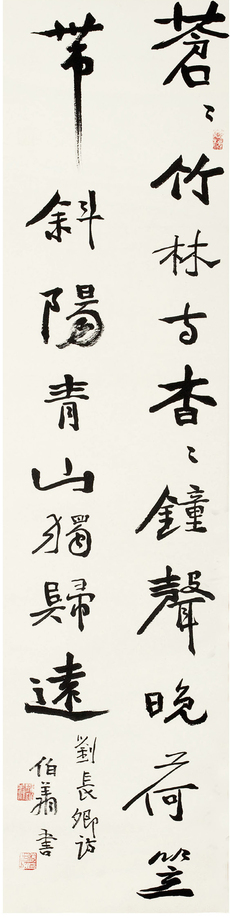 蒼〻竹林寺杳〻鐘聲晚荷笠
帶斜陽青山獨歸遠
劉長卿詩
伯翦書